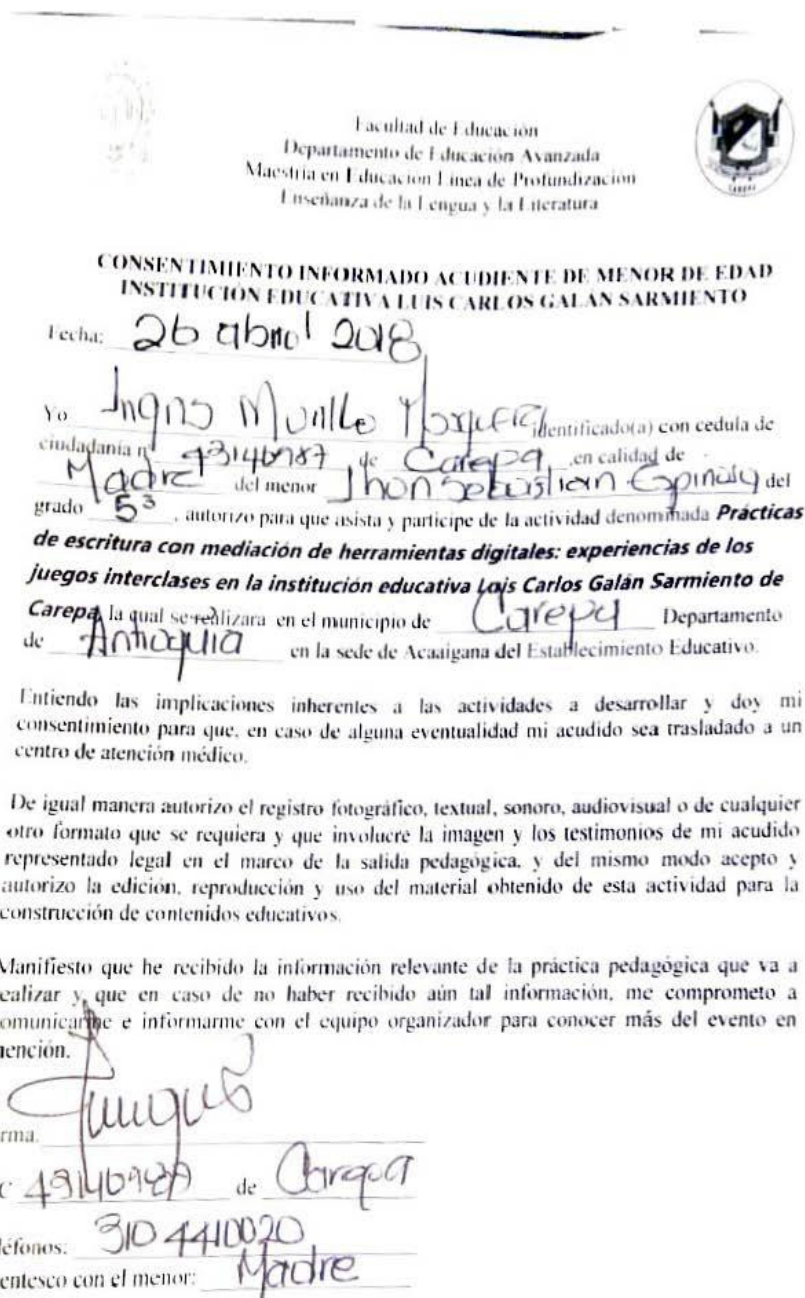 Facultad de Educación
Departamento de Educación Avanzada
Maestría en Educación Línea de Profundización
Enseñanza de la Lengua y la Literatura
CONSENTIMIENTO INFORMADO ACUDIENTE DE MENOR DE EDAD
INSTITUCIÓN EDUCATIVA LUIS CARLOS GALÁN SARMIENTO
Fecha: 26 abril 2018
Yo Ingris Murillo identificado(a) con cedula de
ciudadanía nº de Carepa en calidad de
Madre del menor Jhon Sebastian del
grado 5³, autorizo para que asista y participe de la actividad denominada Prácticas
de escritura con mediación de herramientas digitales: experiencias de los
juegos interclases en la institución educativa Luis Carlos Galán Sarmiento de
Carepa, la qual se realizara en el municipio de Carepa Departamento
de Antioquia en la sede de Acaaigana del Establecimiento Educativo.
Entiendo las implicaciones inherentes a las actividades a desarrollar y doy mi
consentimiento para que, en caso de alguna eventualidad mi acudido sea trasladado a un
centro de atención médico.
De igual manera autorizo el registro fotográfico, textual, sonoro, audiovisual o de cualquier
otro formato que se requiera y que involucre la imagen y los testimonios de mi acudido
representado legal en el marco de la salida pedagógica, y del mismo modo acepto y
autorizo la edición, reproducción y uso del material obtenido de esta actividad para la
construcción de contenidos educativos.
Manifiesto que he recibido la información relevante de la práctica pedagógica que va a
ealizar y que en caso de no haber recibido aún tal información, me comprometo a
omunicarme e informarme con el equipo organizador para conocer más del evento en
ención.
rma.
de Carepa
léfonos: 310 4410020
entesco con el menor: Madre